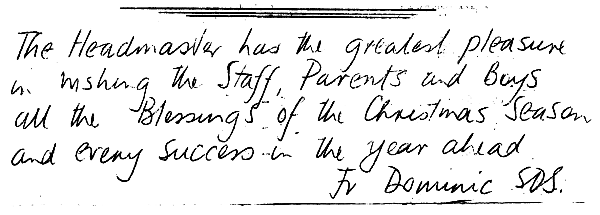 The Headmaster has the greatest pleasure
in wishing the Staff, Parents and Boys
all the Blessings of the Christmas Season
and every success in the year ahead
Fr Dominic SDS.